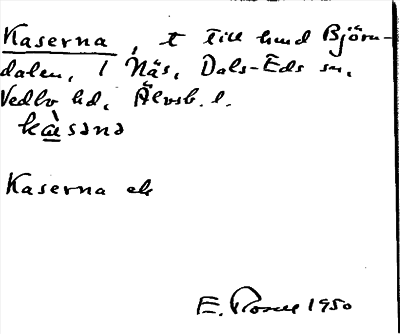 Kaserna, t till hmd Björn-
dalen, 1 Näs, Dals-Eds sn,
Vedbo hd, Älvsb. l.
kàsənə
Kaserna ek
E. 1950